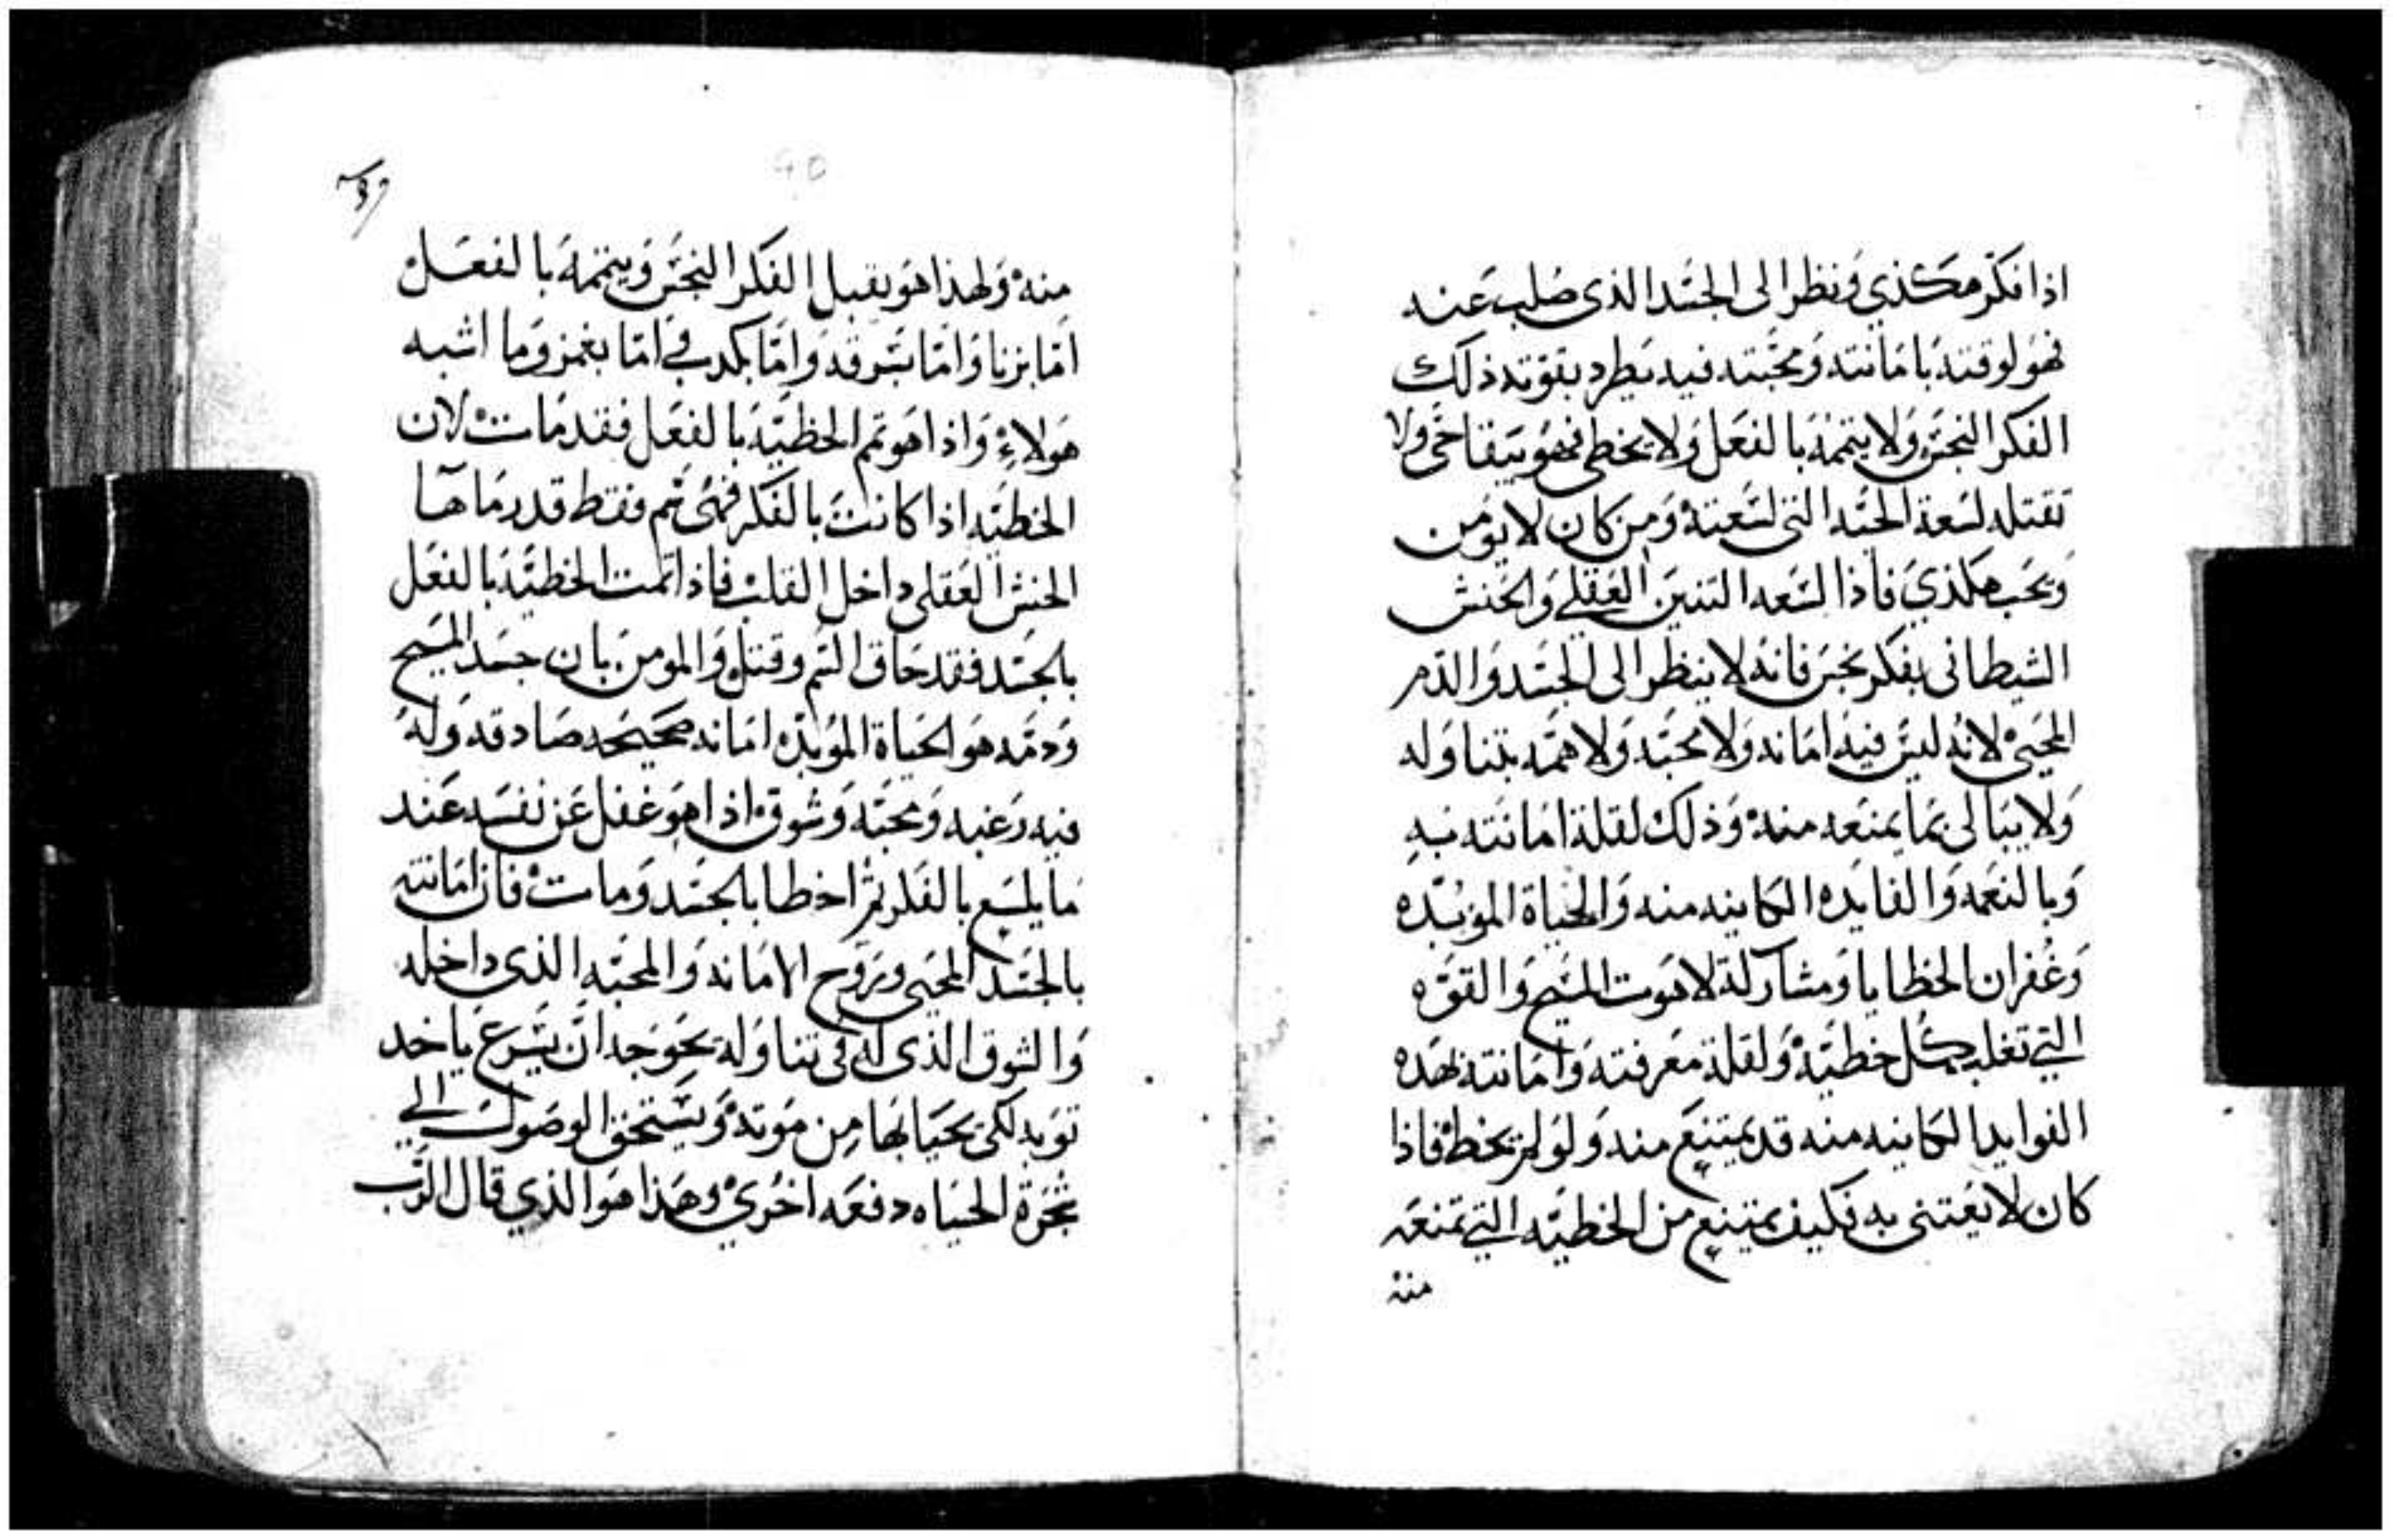 اذا فكر هكذي ونظر الى الجسد الذى صلب عنه
فهو لوقته بامانته ومحبته فيه يطرد بقوته ذلك
الفكر النجس ولا يتممه بالفعل ولا يخطى فهو يبقا حى ولا
تقتله لسعة الحيه التى لسعته ومن كان لا يومن
ويحب هكذي فاذا لسعه التنين العقلي والحنش
الشيطانى بفكر نجس فانه لا ينظر الى الجسد والدم
المحيى لانه ليس فيه امانه ولا محبه ولا همه بتناوله
ولا يبالى بما يمنعه منه وذلك لقلة امانته به
وبالنعمه والفايده الكاينه منه والحياة الموبده
وغفران الخطايا ومشاركة لاهوت المسيح والقوه
التي تغلب كل خطيه ولقلة معرفته وامانته بهده
الفوايد الكاينه منه قد يمتنع منه ولو لم يخط فاذا
كان لا يعتنى به فكيف يمتنع من الخطيه التي تمنعه
منه
منه ولهذا هو يقبل الفكر النجس ويتممه بالفعل
اما بزنا واما بسرقه واما بكدب اما بغمز وما اشبه
هولاء واذا هو تمم الخطيه بالفعل فقد مات لان
الخطيه اذا كانت بالفكر فهى سم فقط قد رماها
الحنش العقلى داخل القلب فاذا تمت الخطيه بالفعل
بالجسد فقد حاق السم وقتل والمومن بان جسد المسيح
ودمه هو الحياة الموبده امانه صحيحه صادقه وله
فيه رغبه ومحبه وشوق اذا هو غفل عن نفسه عند
ما يلسع بالفكر ثم اخطا بالجسد ومات فان امانته
بالجسد المحيى وبروح الامانه والمحبه الذى داخله
والشوق الذى له فى تناوله يحوجه ان يسرع ياخد
توبه لكى يحيا بها من موته ويستحق الوصول الي
شجرة الحياه دفعه اخري وهذا هو الذي قال الرب